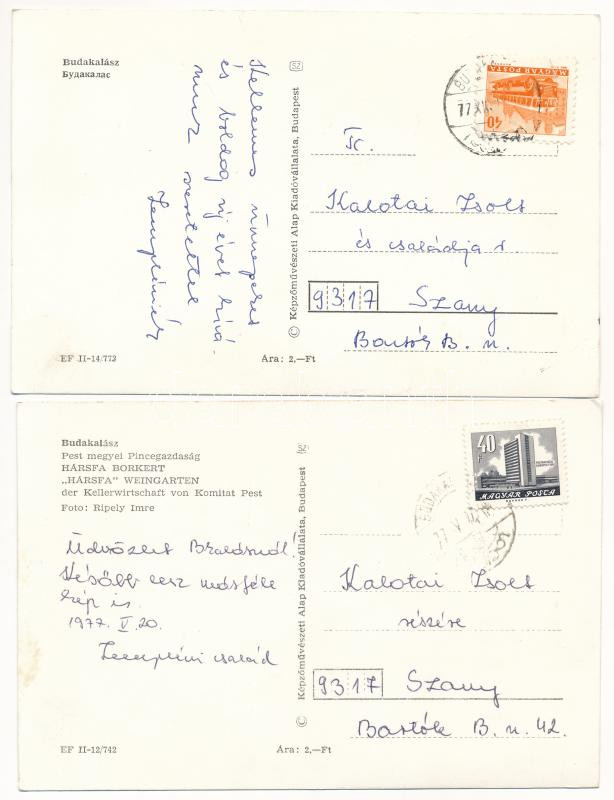 Budakalász
Будакалас
Kellemes ünnepeket
és boldog új évet kívá-
nunk szeretettel
Templiniék
© Képzőművészeti Alap Kiadóvállalata, Budapest
SZ
EF II-14/772
Ára: 2,—Ft
MAGYAR POSTA
40
77 XII
Kalotai Zsolt
és családja r.
9317
Szany
Bartók B. u.
Budakalász
Pest megyei Pincegazdaság
HÁRSFA BORKERT
„HÁRSFA” WEINGARTEN
der Kellerwirtschaft von Komitat Pest
Foto: Ripely Imre
Üdvözlet
Később lesz másféle
kép is.
1977. V. 20.
Templini család
© Képzőművészeti Alap Kiadóvállalata, Budapest
EF II-12/742
Ára: 2,—Ft
40 f
MAGYAR POSTA
BUDAKALÁSZ
77 V
Kalotai Zsolt
részére
9317
Szany
Bartók B. u. 42.